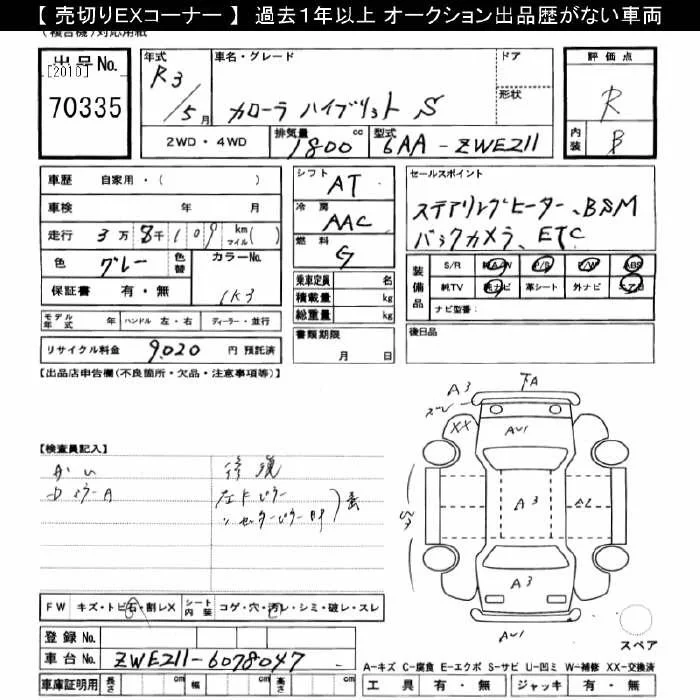 【 売切りEXコーナー 】 過去1年以上 オークション出品歴がない車両
出品No.
[2010]
70335
年式
R3/5月
車名・グレード
カローラ ハイブリット S
ドア
形状
2WD・4WD
排気量 1800 cc
型式 6AA-ZWE211
評価点
R
内装
B
車歴 自家用・( )
車検 年 月
走行 3万8千109 km マイル( )
色 グレー
色替
カラーNo.
1K3
保証書 有・無
モデル年式 年 ハンドル 左・右 ディーラー・並行
リサイクル料金 9,020 円 預託済
シフト AT
冷房 AAC
燃料 G
乗車定員 名
積載量 kg
総重量 kg
書類期限
月 日
セールスポイント
ステアリングヒーター、BSM
バックカメラ、ETC
装備品
S/R 純A/W P/S P/W ABS
純TV 純ナビ 革シート 外ナビ エアB
ナビ型番:
後日品
【出品店申告欄(不良箇所・欠品・注意事項等)】
【検査員記入】
修復
FW キズ・トビ石・割レX
シート内装 コゲ・穴・汚レ・シミ・破レ・スレ
登録No.
車台No. ZWE211-6078047
車庫証明用 長さ cm 幅 cm 高さ cm
A3
XX
AU1
A3
A3
AU1
スペア
A-キズ C-腐食 E-エクボ S-サビ U-凹ミ W-補修 XX-交換済
工具 有・無 ジャッキ 有・無